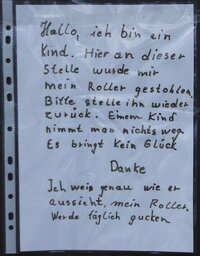 Hallo, ich bin ein
Kind. Hier an dieser
Stelle wurde mir
mein Roller gestohlen.
Bitte stelle ihn wieder
zurück. Einem Kind
nimmt man nichts weg.
Es bringt kein Glück
Danke
Ich weis genau wie er
aussieht, mein Roller.
Werde täglich gucken